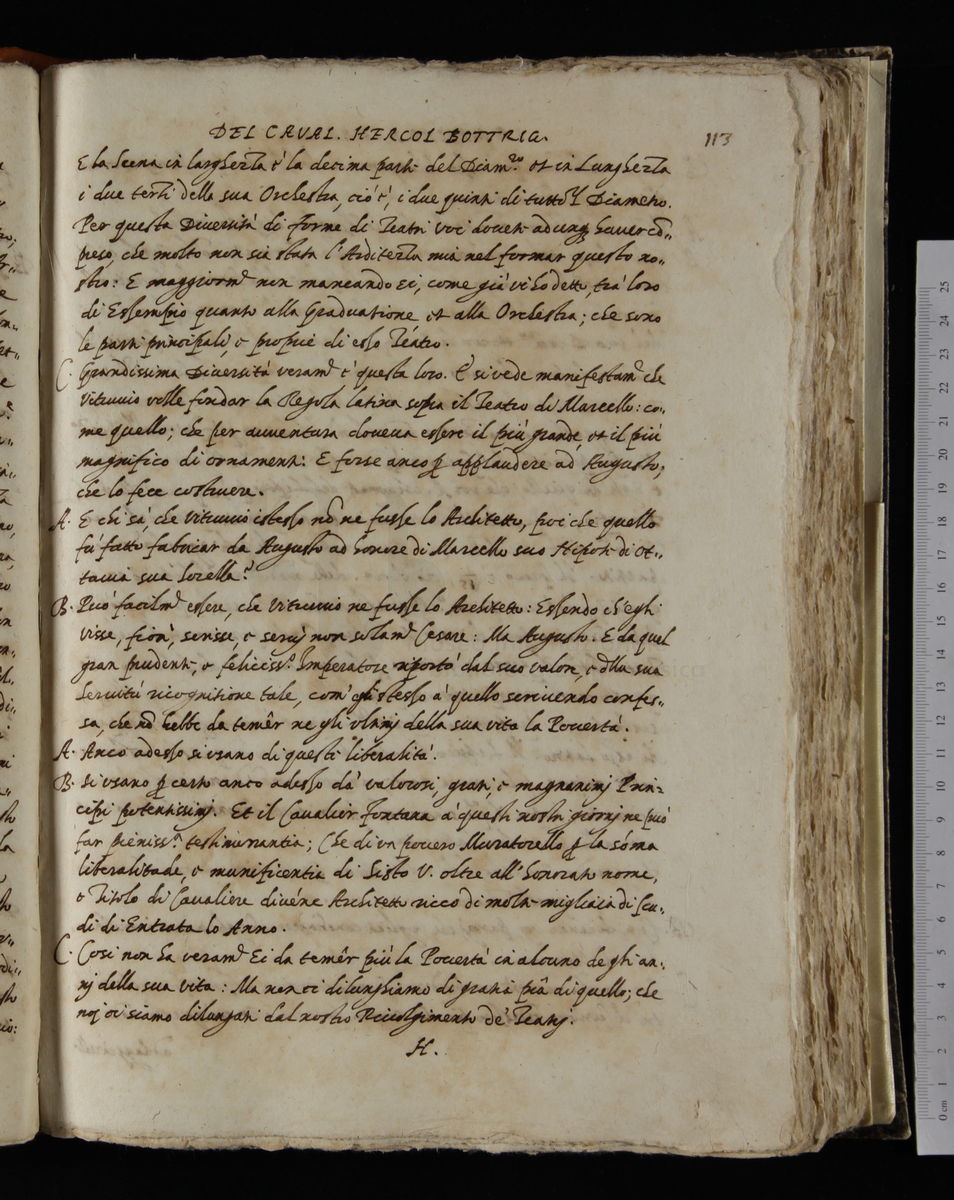 DEL CAVAL. HERCOL BOTTRIG. 113
E la Scena in larghezza è la decima parte del Diam.ro et in Lunghezza
i due terzi della sua Orchestra, ciò è, i due quinti di tutto 'l Diametro.
Per questa Diversità di forme di Teatri voi dovete adunq; haver cō„
preso, che molto non sia stata l'Arditezza mia nel formar questo no„
stro: E maggiorm.e non mancandoci, come già vi ho detto, trà loro
di Essempio quanto alla Graduatione et alla Orchestra; che sono
le parti principali, e proprie di esso Teatro.
C. Grandissima Diversità veram.e è questa loro. E si vede manifestam.e che
Vitruvio volle fondar la Regola latina sopra il Teatro di Marcello: co„
me quello; che per avventura doveva essere il più grande, et il più
magnifico di ornamenti: E forse anco p applaudere ad Augusto;
che lo fece costruere.
A. E chi sà, che Vitruvio istesso nō ne fusse lo Architetto, poi che quello
fù fatto fabricar da Augusto ad honore di Marcello suo Nipote di Ot„
tavia sua Sorella?
B. Può facilm.e essere, che Vitruvio ne fusse lo Architetto: Essendo ch'egli
visse, fiorì, scrisse, e servì non solam.e Cesare: Ma Augusto. E da quel
gran prudente, e feliciss.o Imperatore riportò dal suo valore, e dlla sua
Servitù ricognitione tale, com' egli stesso à quello scrivendo confes„
sa, che nō hebbe da temêr ne gli ultimj della sua vita la Povertà.
A. Anco adesso si usano di queste liberalità.
B. Si usano p certo anco adesso dà valorosi, grati, e magnanimj Prin„
cipi potentissimj. Et il Cavalier Fontana à questi nostri giornj ne può
far pieniss.a testimonantia; Che di un povero Muratorello p la sōma
liberalitade, e munificentia di Sisto V. oltre all' honorato nome,
e Titolo di Cavaliere divéne Architetto ricco di molte migliaia di scu„
di di Entrata lo Anno.
C. Così non ha veram.e Ei da temêr più la Povertà in alcuno degli an„
nj della sua vita: Ma non ci dilunghiamo di gratia più di quello; che
noj ci siamo dilungati dal nostro Rivolgimento de' Teatrj.
H.